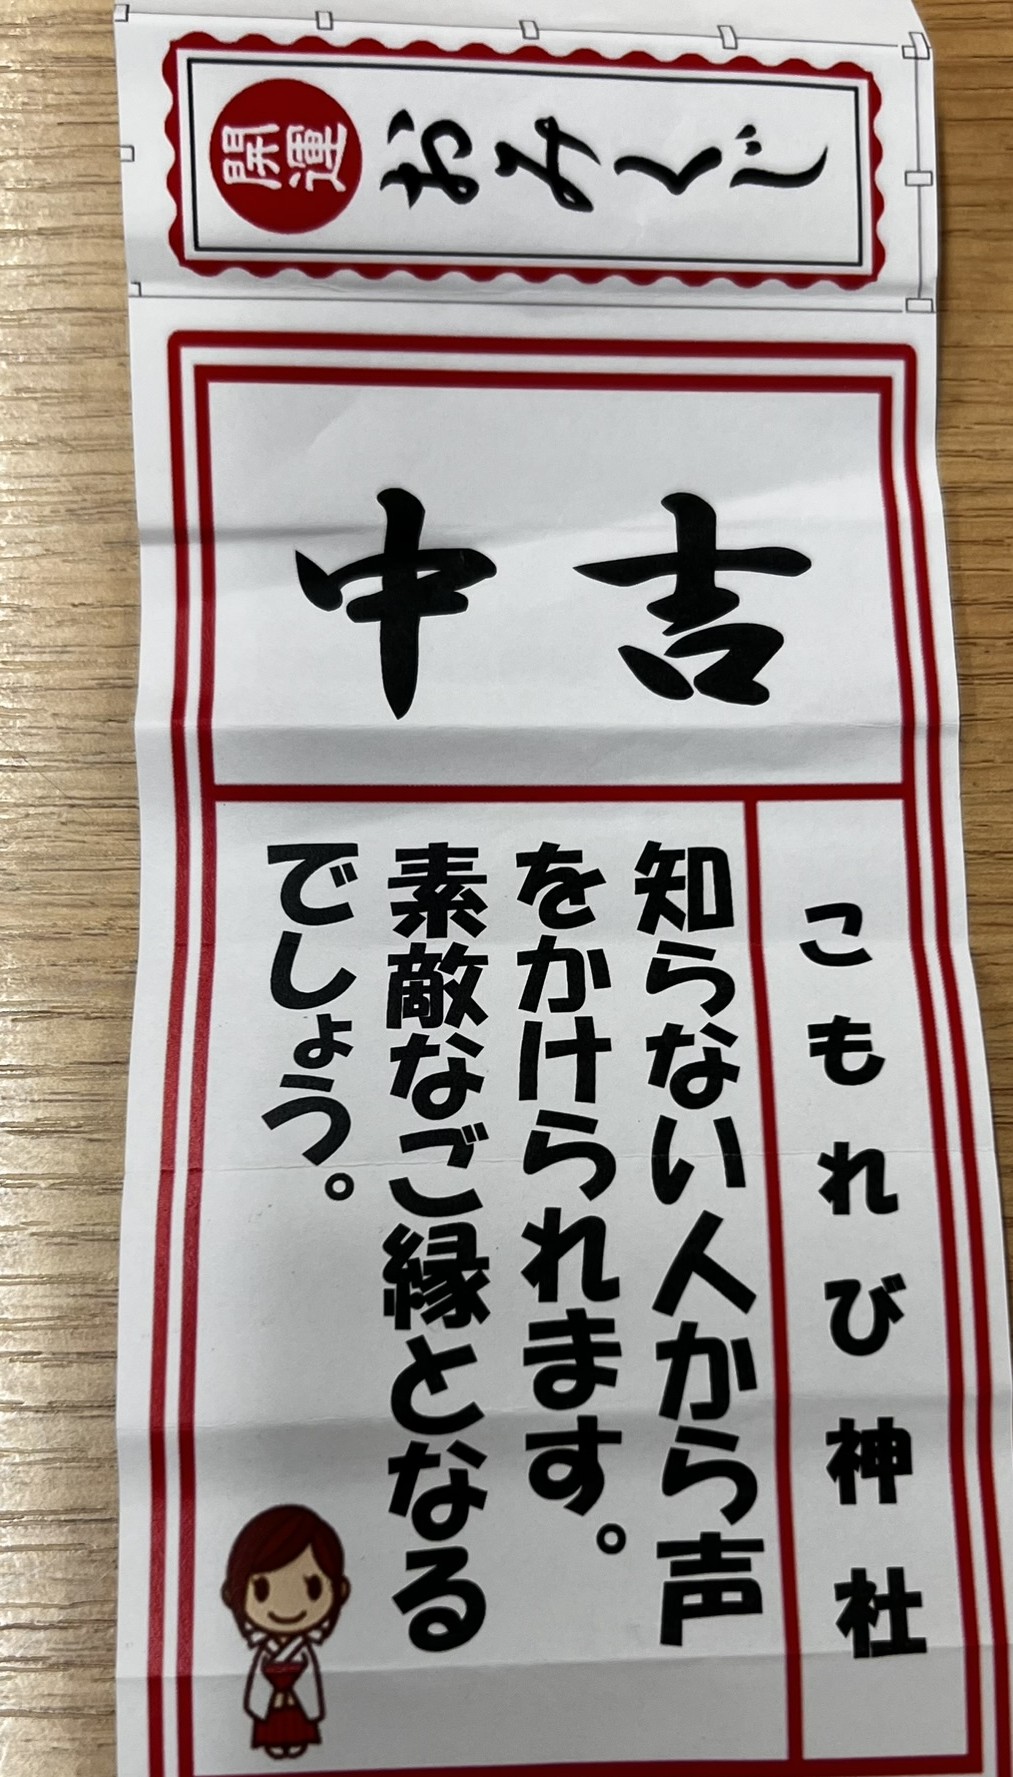 開運
おみくじ
中吉
こもれび神社
知らない人から声
をかけられます。
素敵なご縁となる
でしょう。